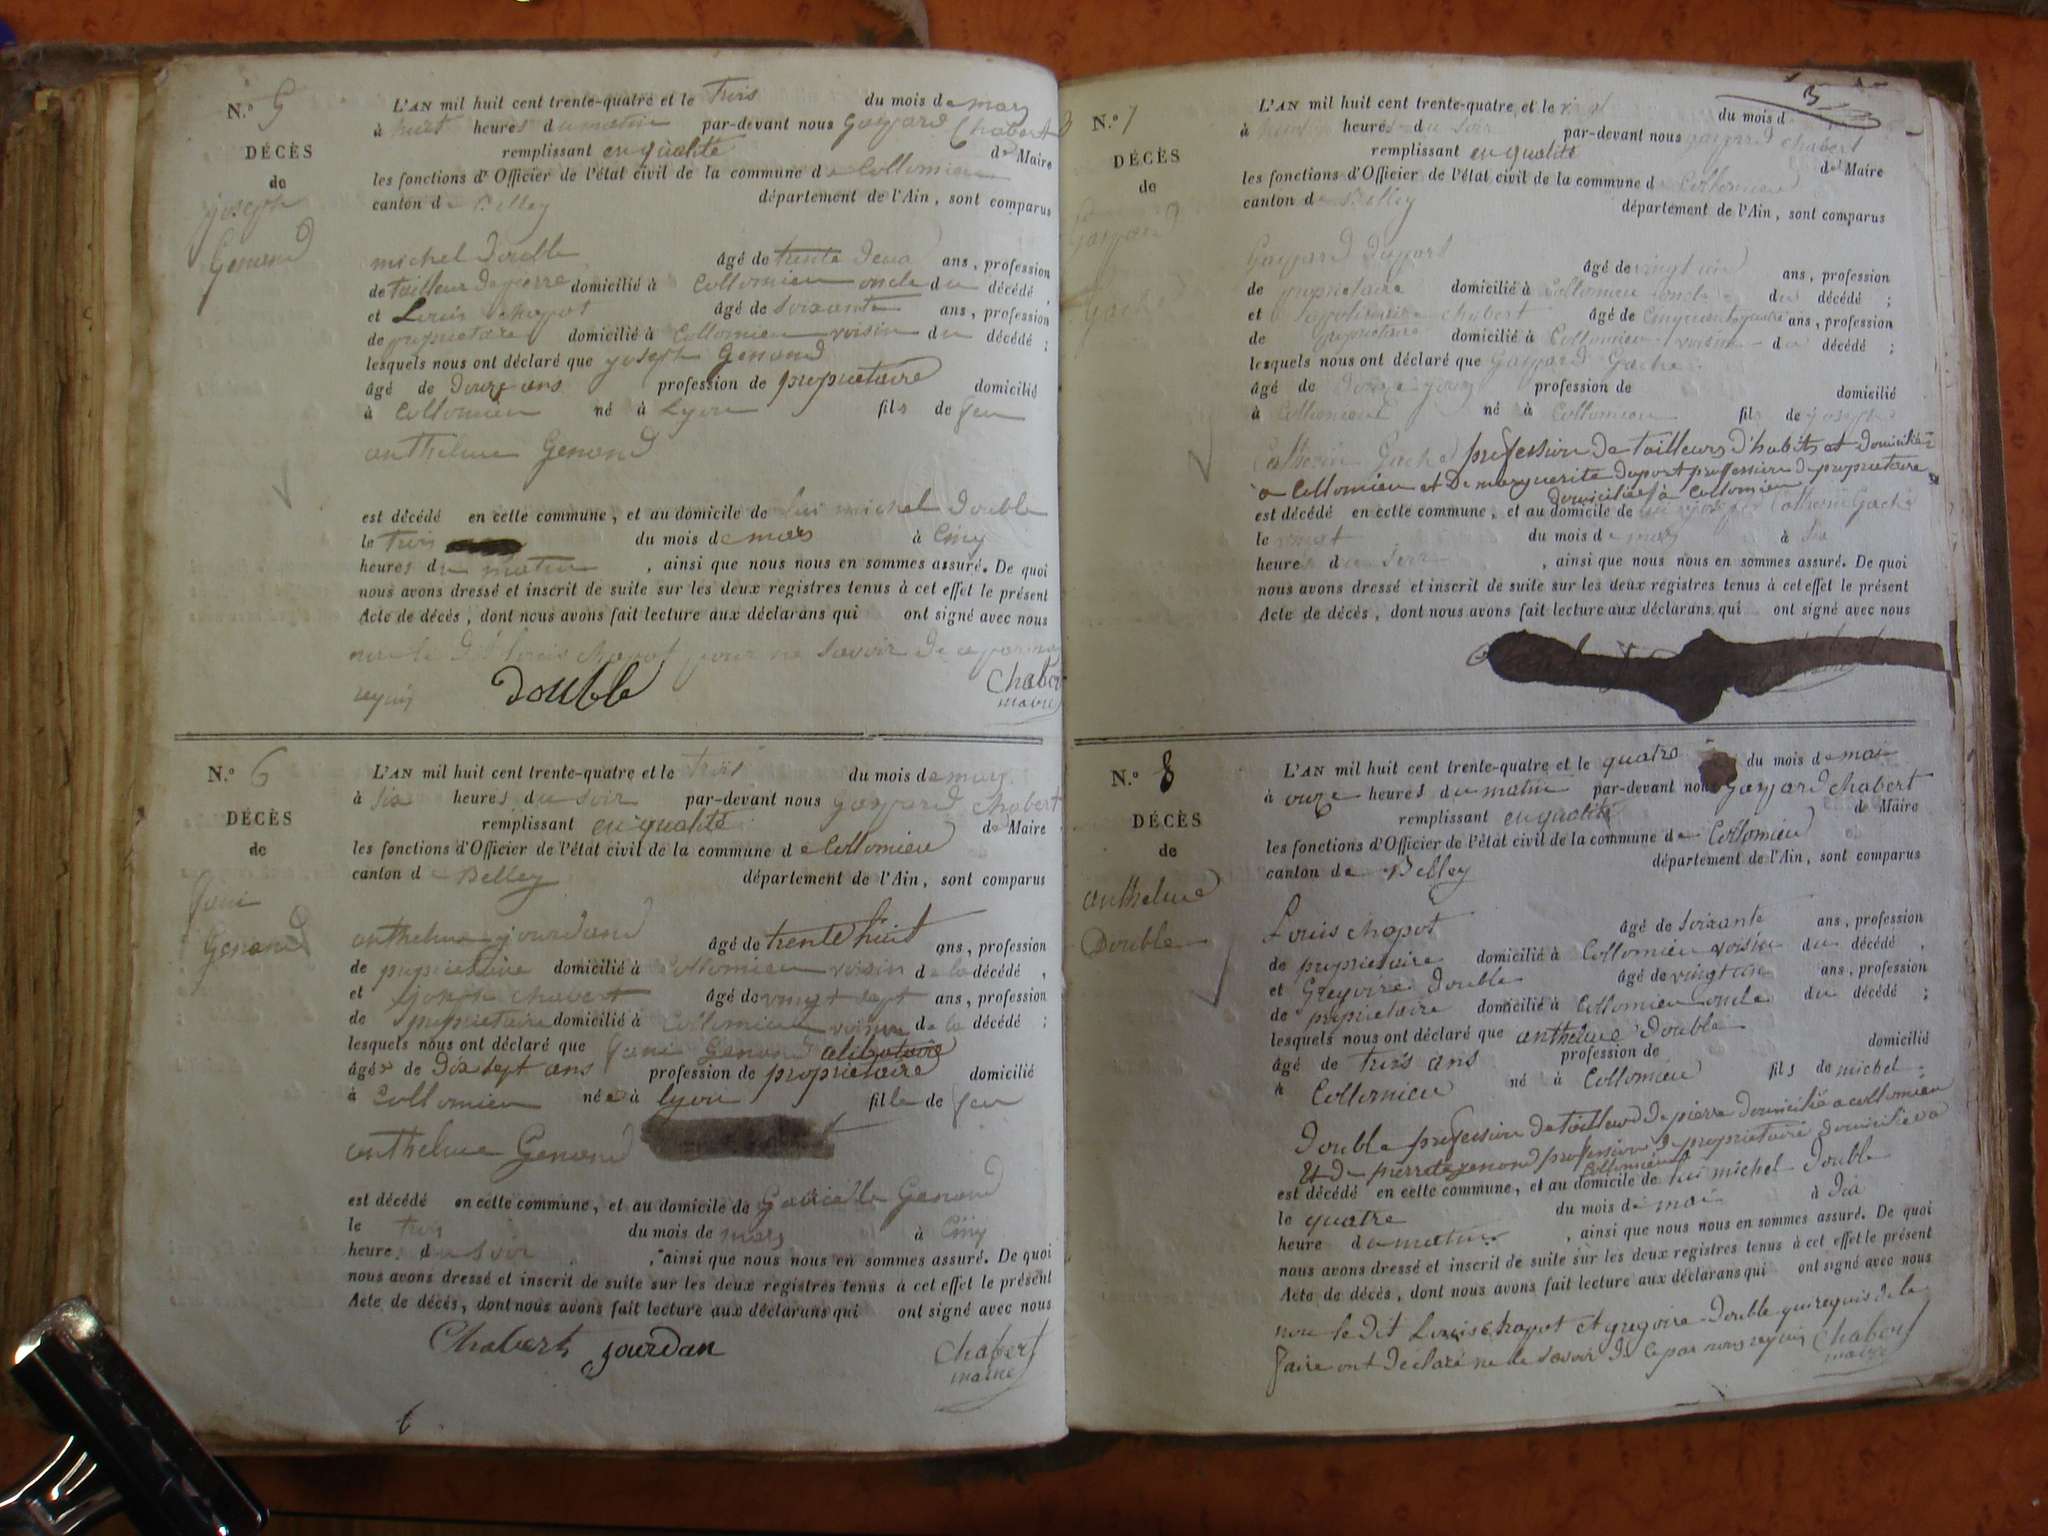 N.º 5
DÉCÈS
de
joseph
Genand
L'AN mil huit cent trente-quatre et le trois du mois de mars
à huit heures du matin par-devant nous gaspard Chabert
remplissant en qualité de Maire
les fonctions d'Officier de l'état civil de la commune de Collomieu
canton de Belley département de l'Ain, sont comparus
michel Double âgé de trente deux ans, profession
de tailleur de pierre domicilié à Collomieu oncle du décédé,
et Louis chapot âgé de soixante ans, profession
de proprietaire domicilié à Collomieu voisin du décédé ;
lesquels nous ont déclaré que joseph Genand
âgé de douze ans profession de proprietaire domicilié
à Collomieu né à Lyon fils de feu
anthelme Genand
est décédé en cette commune, et au domicile de lui michel Double
le trois du mois de mars à Cinq
heures du matin, ainsi que nous nous en sommes assuré. De quoi
nous avons dressé et inscrit de suite sur les deux registres tenus à cet effet le présent
Acte de décès, dont nous avons fait lecture aux déclarans qui ont signé avec nous
non le dit louis chapot pour ne savoir de ce par nous
requis Double Chabert
maire
N.º 6
DÉCÈS
de
Genand
L'AN mil huit cent trente-quatre et le trois du mois de mars
à six heures du soir par-devant nous gaspard Chabert
remplissant en qualité de Maire
les fonctions d'Officier de l'état civil de la commune de Collomieu
canton de Belley département de l'Ain, sont comparus
anthelme jourdand âgé de trente huit ans, profession
de proprietaire domicilié à Collomieu voisin de la décédé,
et joseph chabert âgé de vingt sept ans, profession
de proprietaire domicilié à Collomieu voisin de la décédé ;
lesquels nous ont déclaré que Genand
âgée de Dix sept ans profession de proprietaire domicilié
à Collomieu née à lyon fille de feu
anthelme Genand
est décédé en cette commune, et au domicile de Genand
le trois du mois de mars à Cinq
heure du soir, ainsi que nous nous en sommes assuré. De quoi
nous avons dressé et inscrit de suite sur les deux registres tenus à cet effet le présent
Acte de décès, dont nous avons fait lecture aux déclarans qui ont signé avec nous
Chabert jourdan Chabert
maire
6
3
N.º 7
DÉCÈS
de
Gaspard
Gache
L'AN mil huit cent trente-quatre et le du mois d
à heures du soir par-devant nous gaspard Chabert
remplissant en qualité de Maire
les fonctions d'Officier de l'état civil de la commune de Collomieu
canton de Belley département de l'Ain, sont comparus
Gaspard Duport âgé de vingt ans, profession
de proprietaire domicilié à Collomieu oncle du décédé ;
et chabert âgé de Cinquante quatre ans, profession
de proprietaire domicilié à Collomieu voisin du décédé ;
lesquels nous ont déclaré que Gaspard Gache
âgé de jours profession de domicilié
à Collomieu né à Collomieu fils de joseph
Gache profession de tailleurs d'habits et domicilié
a Collomieu et De marguerite duport profession de proprietaire
domiciliée à Collomieu
est décédé en cette commune, et au domicile de Gache
le vingt du mois de mars à six
heures du soir, ainsi que nous nous en sommes assuré. De quoi
nous avons dressé et inscrit de suite sur les deux registres tenus à cet effet le présent
Acte de décès, dont nous avons fait lecture aux déclarans qui ont signé avec nous
N.º 8
DÉCÈS
de
anthelme
Double
L'AN mil huit cent trente-quatre et le quatre du mois de mai
à onze heures du matin par-devant nous Gaspard chabert
remplissant en qualité de Maire
les fonctions d'Officier de l'état civil de la commune de Collomieu
canton de Belley département de l'Ain, sont comparus
Louis chapot âgé de soixante ans, profession
de proprietaire domicilié à Collomieu voisin du décédé,
et Gregoire Double âgé de vingt ans, profession
de proprietaire domicilié à Collomieu oncle du décédé ;
lesquels nous ont déclaré que anthelme Double
âgé de trois ans profession de domicilié
à Collomieu né à Collomieu fils de michel
Double profession de tailleur de pierre domicilié a collomieu
Et de genand profession de proprietaire domiciliée a
Collomieu
est décédé en cette commune, et au domicile de lui michel Double
le quatre du mois de mai à dix
heure du matin, ainsi que nous nous en sommes assuré. De quoi
nous avons dressé et inscrit de suite sur les deux registres tenus à cet effet le présent
Acte de décès, dont nous avons fait lecture aux déclarans qui ont signé avec nous
non le dit Louis chapot et gregoire Double qui requis de le
faire ont déclaré ne le savoir de ce par nous requis Chabert
maire